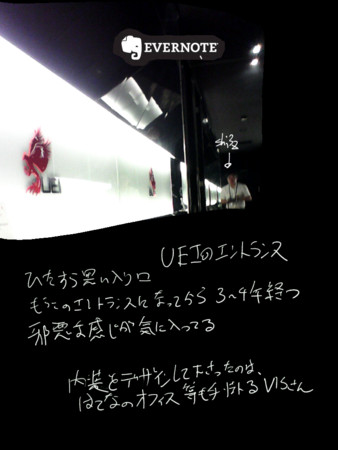 EVERNOTE
UEI
UEIのエントランス
ひたすら黒い入り口
もうこのエントランスになってから3〜4年経つ
邪悪な感じが気に入ってる
内装をデザインして下さったのは、
はてなのオフィス等も手掛るVISさん